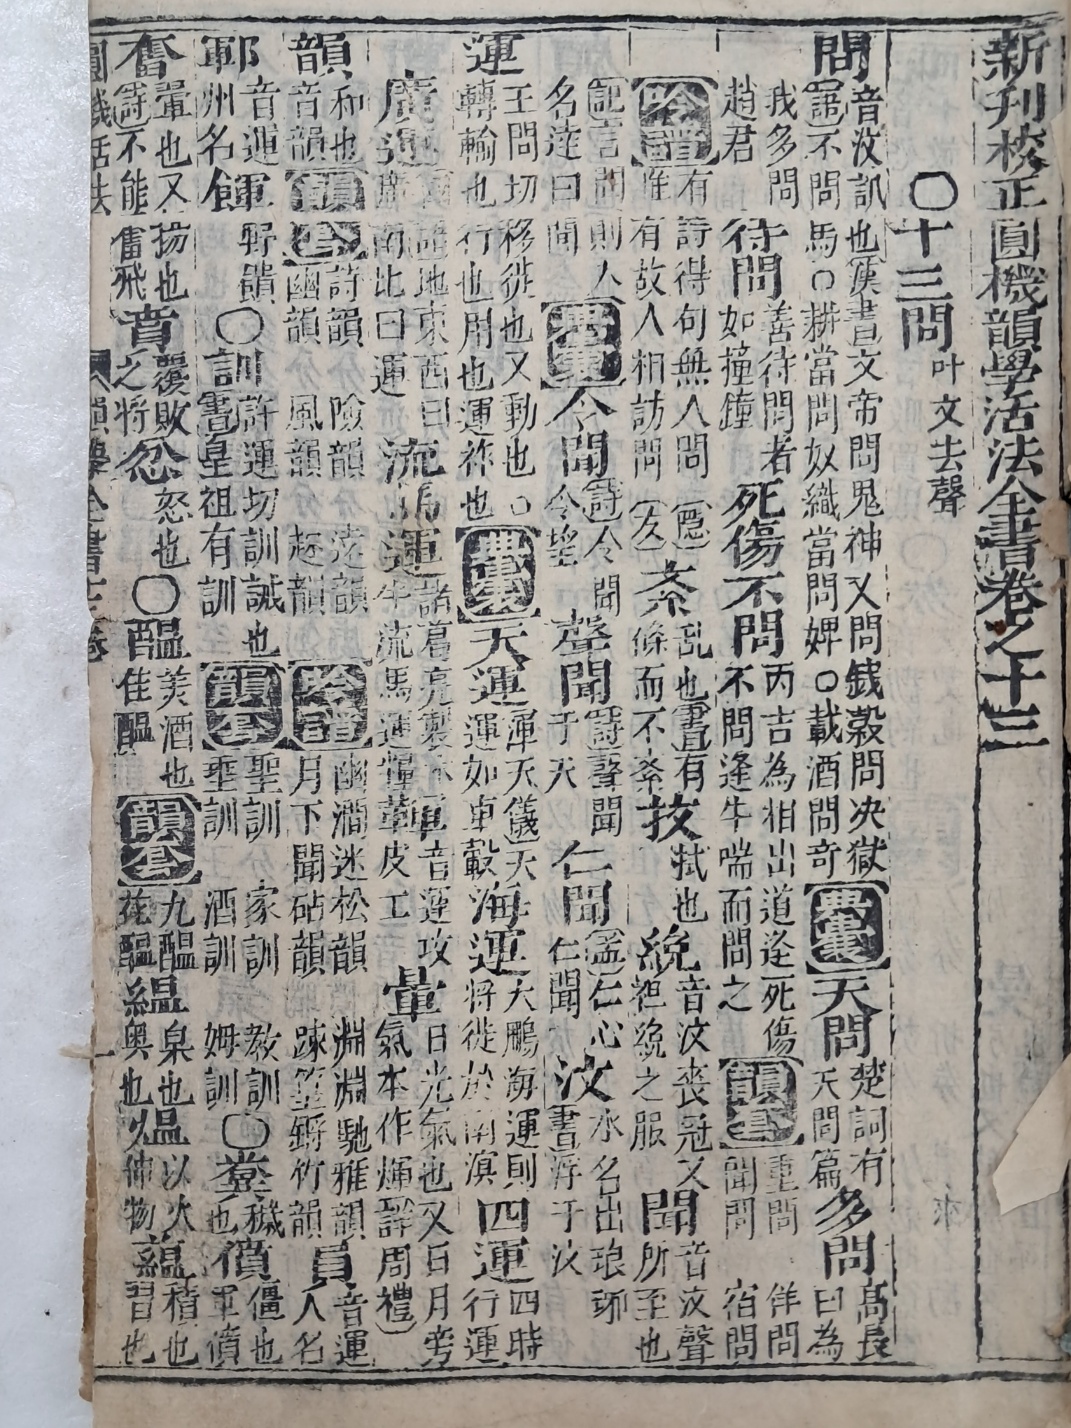 新刊校正圓機韻學活法全書卷之十三
〇十三問 叶文去聲
問 音汶訊也漢書文帝問鬼神又問錢穀問决獄 詩不問馬〇耕當問奴織當問婢〇載酒問奇 典故 天問 楚詞有天問篇 多問 高長曰為
我多問趙君 待問 善待問者如撞鐘 死傷不問 丙吉為相出道逢死傷不問逢牛喘而問之 韻叶 重問 佯問 聞問 宿問
吟料 有詩得句無人問 惟有故人相訪問 紊 亂也書有條而不紊 抆 拭也 絻 音汶喪冠又袒絻之服 聞 音汶聲所至也
記言聞則人名達曰聞 典故 令聞 詩令聞令望 聲聞 詩聲聞于天 仁聞 孟仁心仁聞 汶 水名出琅邪書浮于汶
運 王問切移徙也又動也〇轉輸也行也用也運祚也 典故 天運 渾天儀天運如車轂 海運 大鵬海運則將徙於南溟 四運 四時行運
廣運 地東西曰廣南北曰運 流馬運 諸葛亮製木牛流馬運糧 鞏 音運攻皮工 暈 日光氣也又日月旁氣本作煇 周禮
韻 和也音韻 韻叶 詩韻 險韻 遠韻 幽韻 風韻 趁韻 吟料 幽澗迷松韻 月下聞砧韻 淵淵馳雅韻 踈篁鏘竹韻 員 音運人名
鄆 音運州名 餫 野饋 〇訓 許運切訓誡也書皇祖有訓 韻叶 聖訓 家訓 教訓 垂訓 酒訓 姆訓 〇糞 穢也 僨 僵也軍僨
奮 翬也又揚也詩不能奮飛 賁 覆敗之將 忿 怒也 〇醖 美酒也佳醖 韻叶 九醖 花醖 緼 枲也奥也 熅 以火伸物 蘊 積也習也
圓機活法 韻學全書十三卷 一